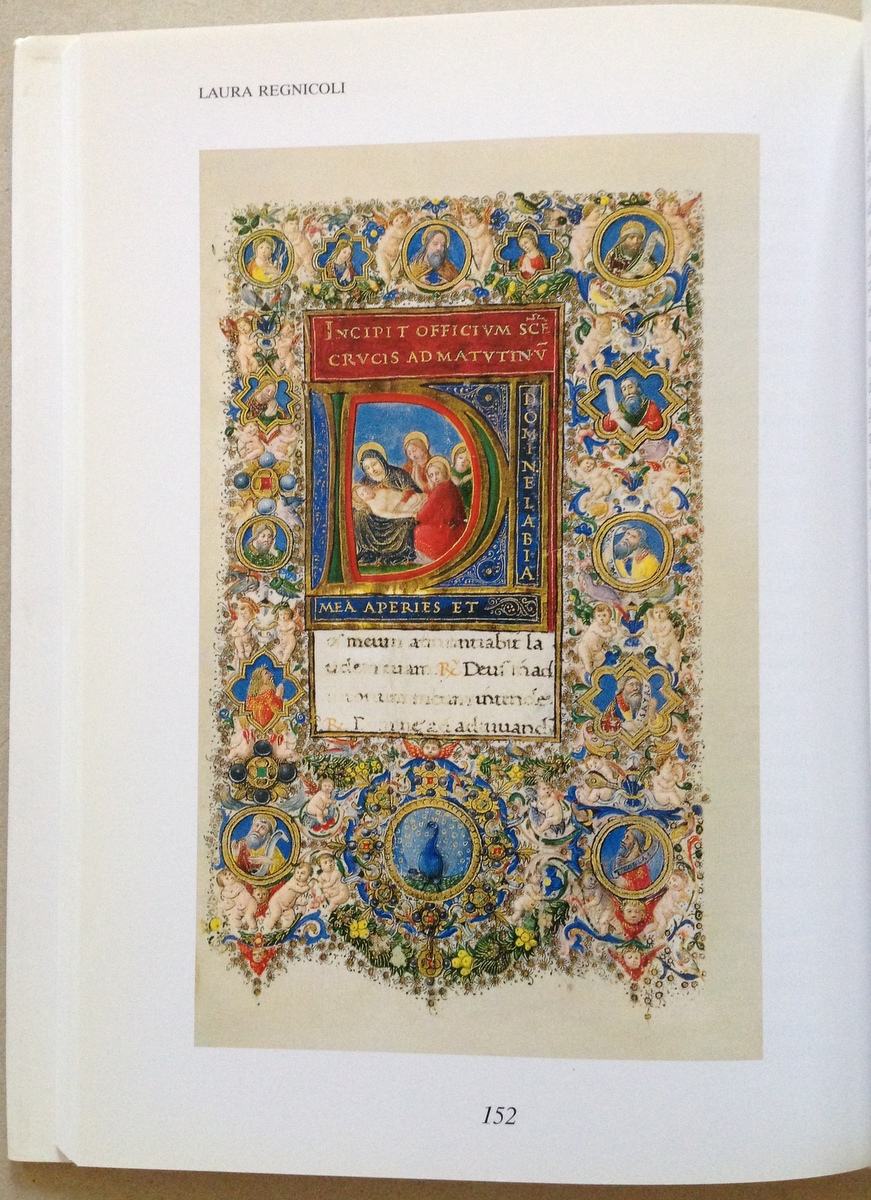 LAURA REGNICOLI
INCIPIT OFFICIVM SCE̅
CRVCIS AD MATVTINV̅
DOMINE LABIA
MEA APERIES ET
os meum annuntiabit la
udem tuam R Deus in ad
meum intende
R
152